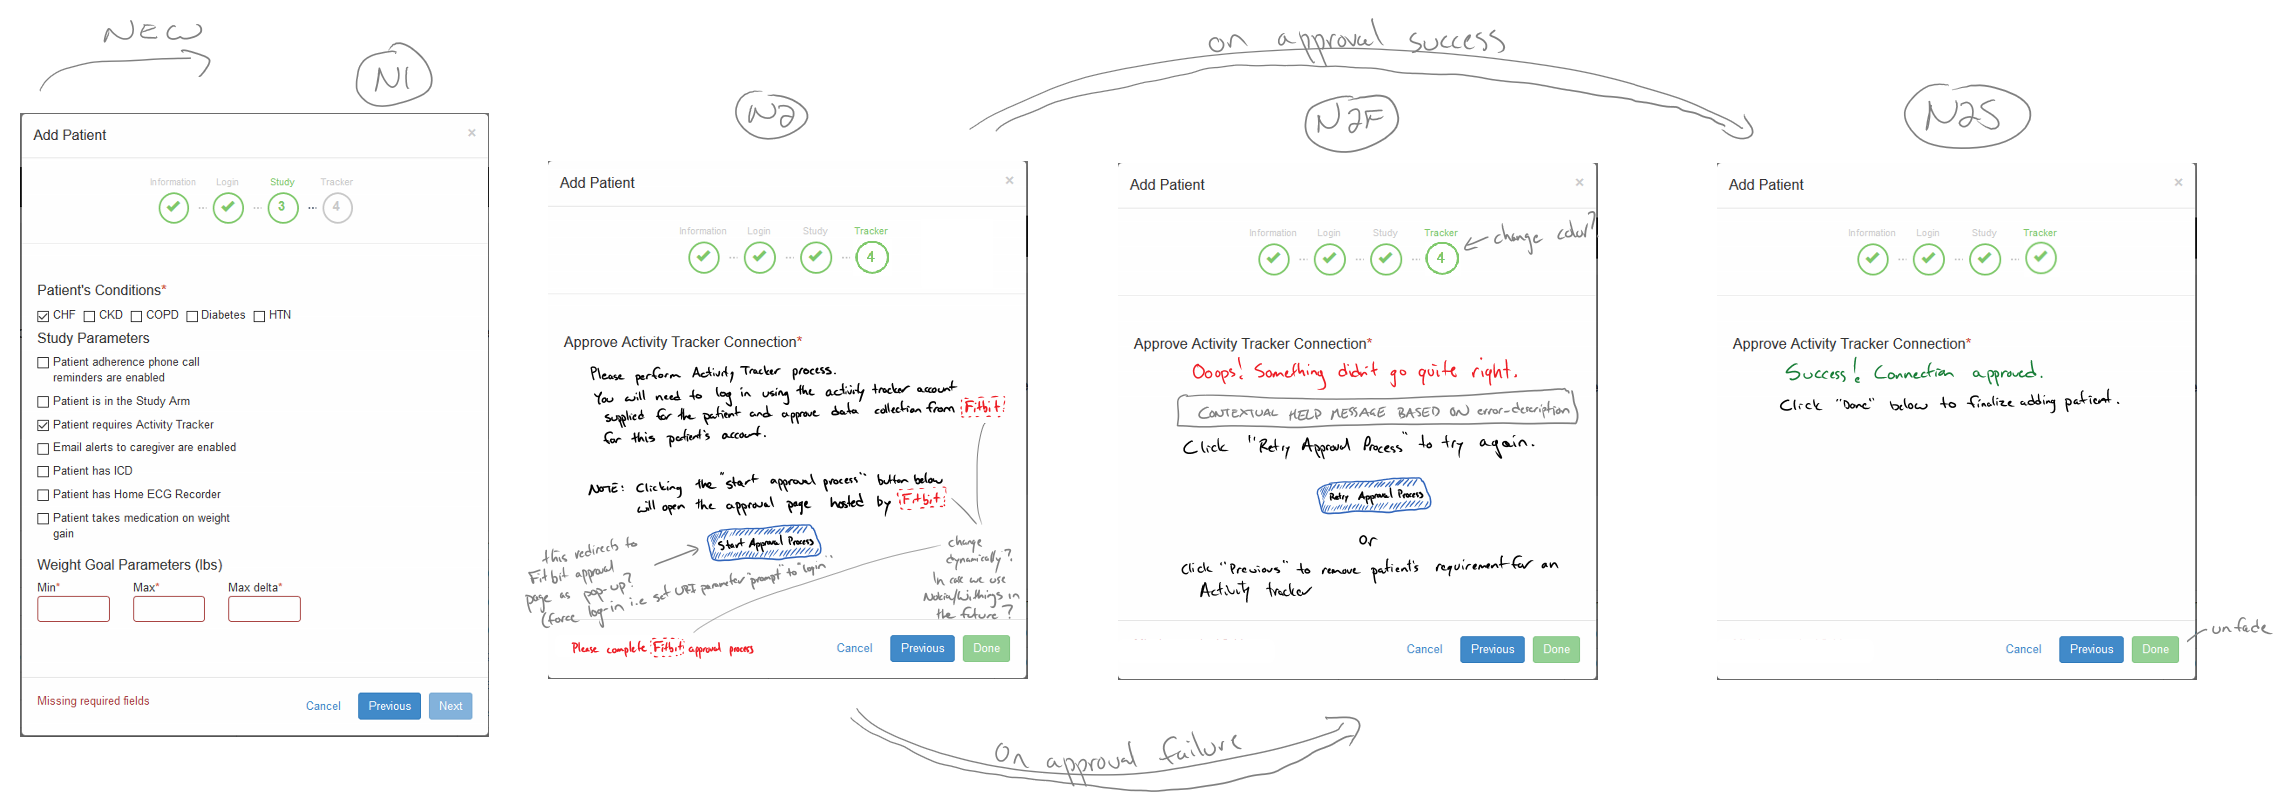 NEW
N1
Add Patient
×
Information Login Study Tracker
3 4
Patient's Conditions*
CHF CKD COPD Diabetes HTN
Study Parameters
Patient adherence phone call
reminders are enabled
Patient is in the Study Arm
Patient requires Activity Tracker
Email alerts to caregiver are enabled
Patient has ICD
Patient has Home ECG Recorder
Patient takes medication on weight
gain
Weight Goal Parameters (lbs)
Min* Max* Max delta*
Missing required fields
Cancel Previous Next
N2
Add Patient
×
Information Login Study Tracker
4
Approve Activity Tracker Connection*
Please perform Activity Tracker process.
You will need to log in using the activity tracker account
supplied for the patient and approve data collection from Fitbit
for this patient's account.
NOTE: Clicking the "start approval process" button below
will open the approval page hosted by Fitbit
Start Approval Process
this redirects to
Fitbit approval
page as pop-up?
(force log-in i.e set URI parameter "prompt" to "login"
change
dynamically?
In case we use
Nokia/Withings in
the future?
Please complete Fitbit approval process
Cancel Previous Done
on approval success
On approval failure
N2F
Add Patient
×
Information Login Study Tracker
4
change color?
Approve Activity Tracker Connection*
Ooops! Something didn't go quite right.
CONTEXTUAL HELP MESSAGE BASED ON error-description
Click "Retry Approval Process" to try again.
Retry Approval Process
or
Click "Previous" to remove patient's requirement for an
Activity tracker
Cancel Previous Done
N2S
Add Patient
×
Information Login Study Tracker
Approve Activity Tracker Connection*
Success! Connection approved.
Click "Done" below to finalize adding patient.
unfade
Cancel Previous Done